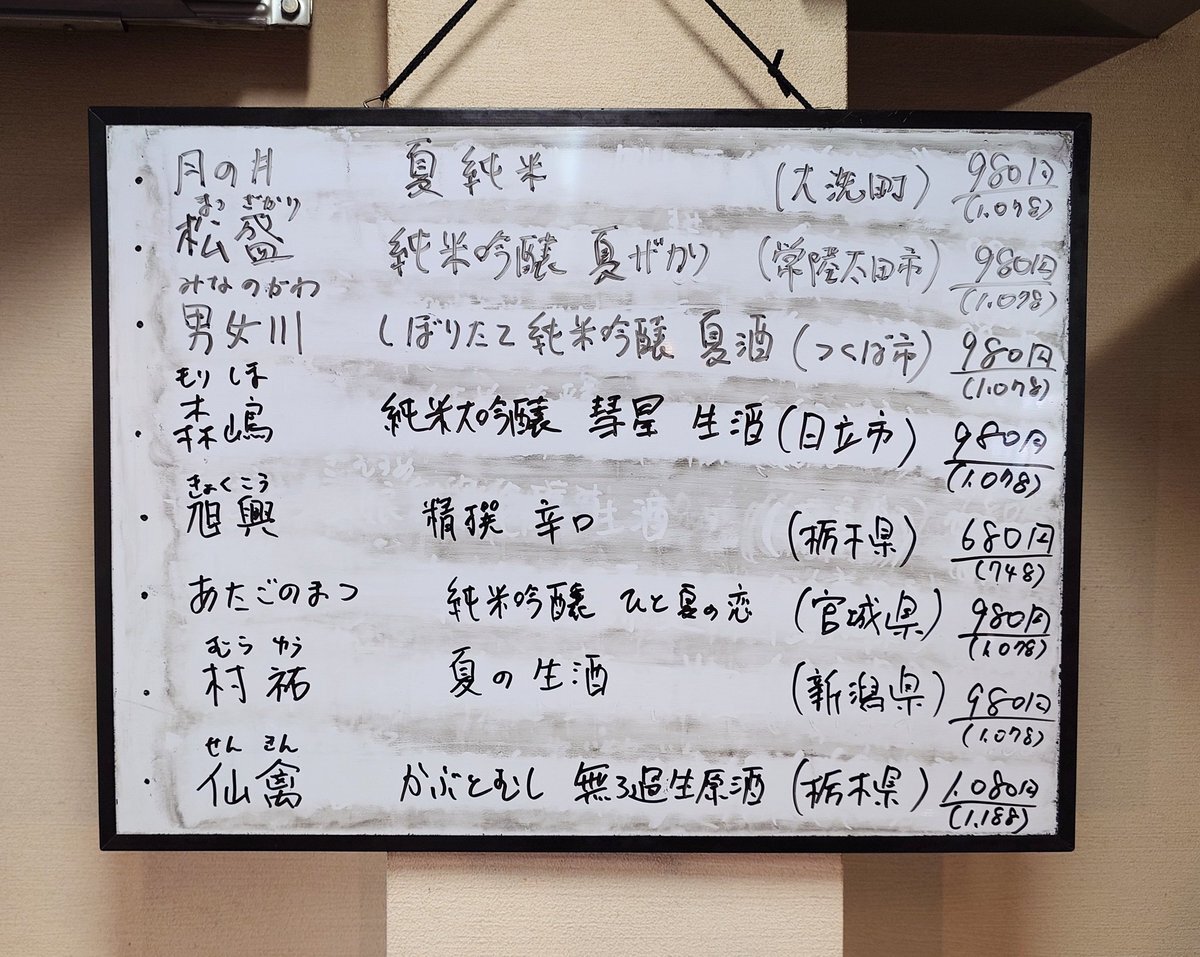 ・月の井 夏純米 (大洗町) 980円
(1.078)
まつざかり
・松盛 純米吟醸 夏ざかり (常陸太田市) 980円
(1.078)
みなのかわ
・男女川 しぼりたて純米吟醸 夏酒 (つくば市) 980円
(1.078)
もりしま
・森嶋 純米大吟醸 彗星 生酒 (日立市) 980円
(1.078)
きょくこう
・旭興 精撰 辛口 (栃木県) 680円
(748)
・あたごのまつ 純米吟醸 ひと夏の恋 (宮城県) 980円
(1.078)
むらゆう
・村祐 夏の生酒 (新潟県) 980円
(1.078)
せんきん
・仙禽 かぶとむし 無ろ過生原酒 (栃木県) 1.080円
(1.188)